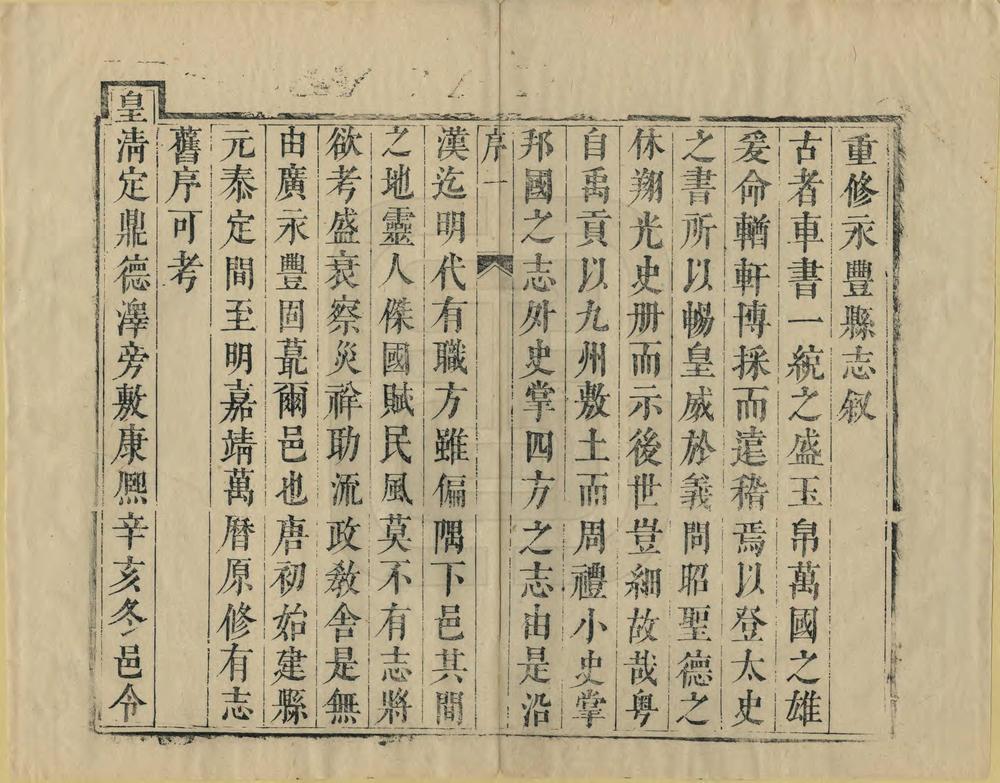 重修永豐縣志叙
古者車書一統之盛玉帛萬國之雄
爰命輶軒博採而遠稽焉以登太史
之書所以暢皇威於義問昭聖德之
休翔光史册而示後世豈細故哉粤
自禹貢以九州敷土而周禮小史掌
邦國之志外史掌四方之志由是沿
序 一
漢迄明代有職方雖偏隅下邑其間
之地靈人傑國賦民風莫不有志將
欲考盛衰察災祥助流政教舍是無
由廣永豐固蕞爾邑也唐初始建縣
元泰定間至明嘉靖萬曆原修有志
舊序可考
皇清定鼎德澤旁敷康熙辛亥冬邑令